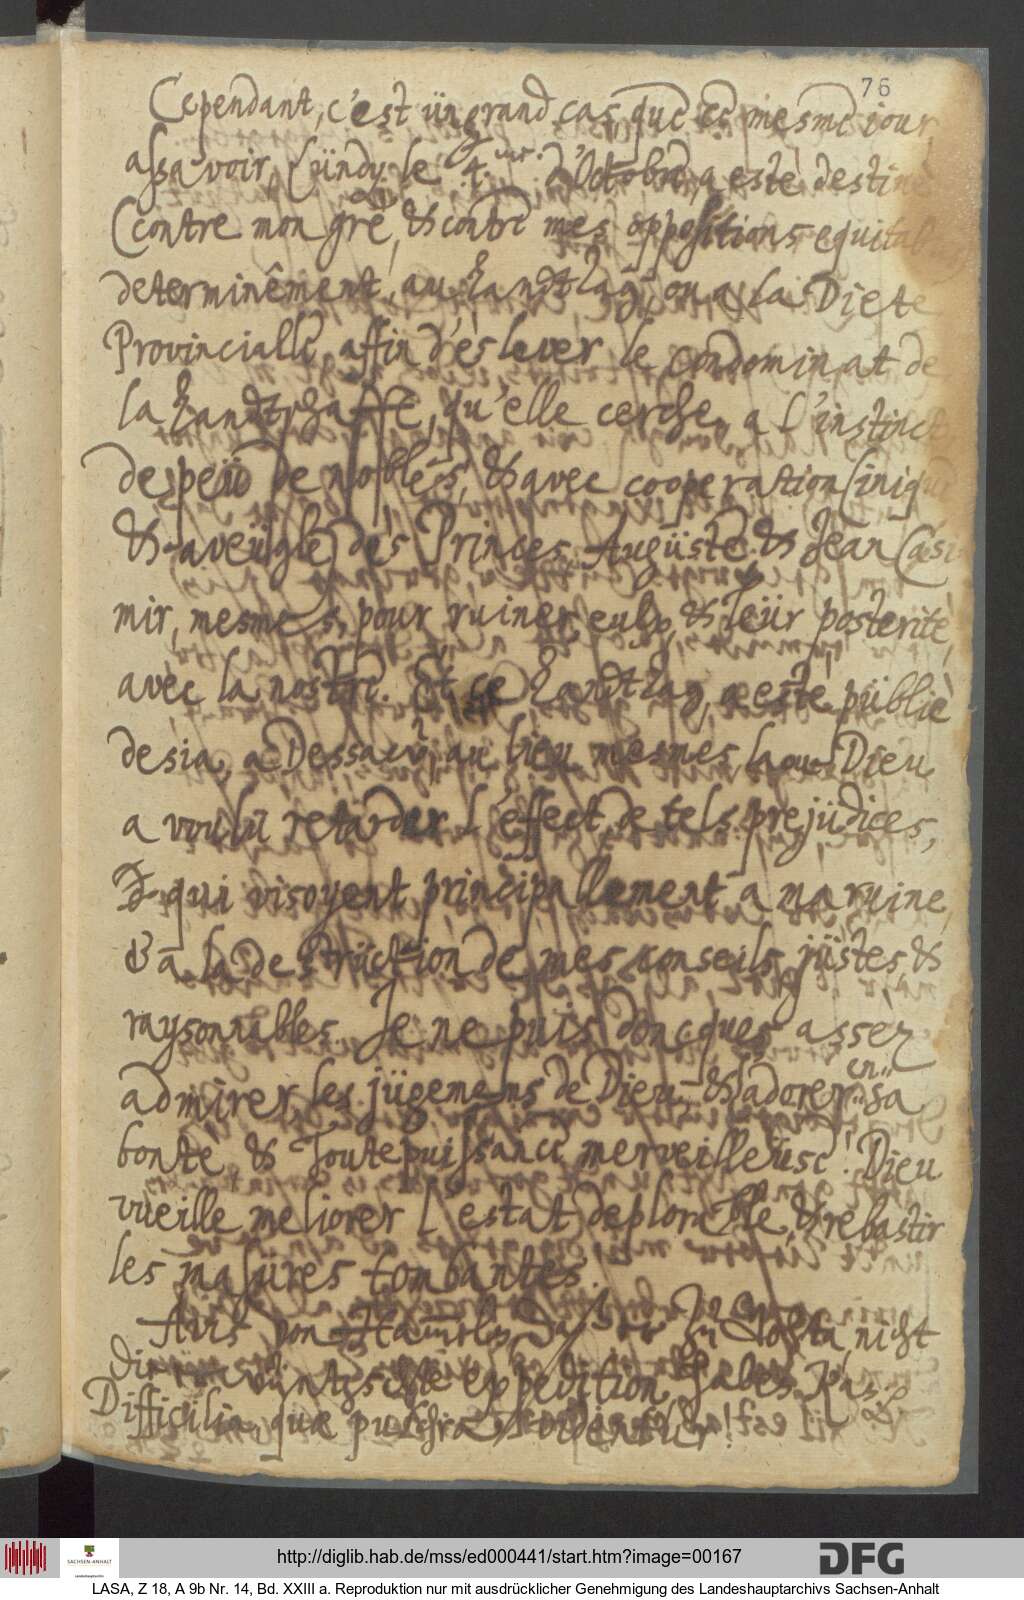 76
Cependant, c'est ün grand cas, que ce mesme jour,
assavoir, Lündy le 4.me d'Octobre, a esté destinè
(contre mon grè, & contre mes oppositions equitables
determinêment, au Landtag, ou a la Diete
Provincialle, affin d'eslever le condominat de
la Landtschafft, qu'elle cerche, a l'instinct
de peü de noblès, & avec cooperation (inique
& aveügle) des Princes, Augüste & Jean Casi-
mir, mesmes, pour ruiner eulx, & leür posteritè,
avec la nostre. Et ce Landtag, a estè püblié
desia, a Dessaw, au lieu mesmes, la ou Dieu
a voulu retarder l'effect, de tels prejüdices,
& qui visoyent principallement a ma ruine,
& a la destrüction de mes conseils jüstes, &
raysonnables. Je ne puis doncques assez
admirer les jügemens de Dieu, & adorer en sa
bontè & Toutepuissance merveilleüse! Dieu
vueille meliorer l'estat deplorable, & rebastir
les masüres tombantes.
Avis von Hameln, das er zu Gotha nicht
die erwüntzschte expedition habe. P.
Difficilia, quæ pulchra, videntur!
http://diglib.hab.de/mss/ed000441/start.htm?image=00167
SACHSEN-ANHALT
DFG
LASA, Z 18, A 9b Nr. 14, Bd. XXIII a. Reproduktion nur mit ausdrücklicher Genehmigung des Landeshauptarchivs Sachsen-Anhalt